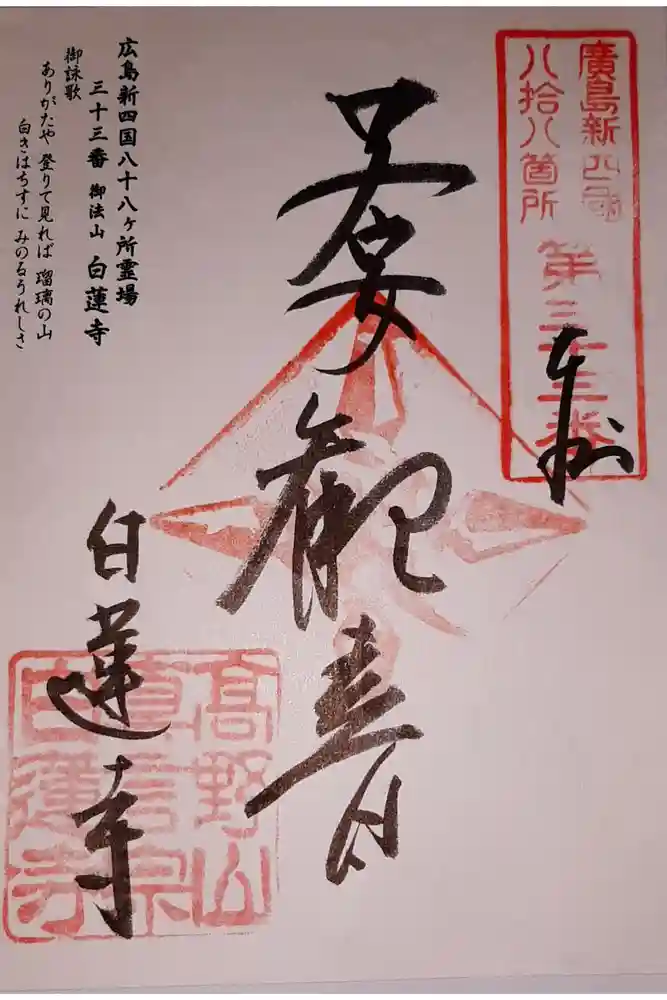 廣島新四國
八拾八箇所
第三十三番
観音
白蓮寺
高野山
真言宗
白蓮寺
広島新四国八十八ヶ所霊場
三十三番 御法山 白蓮寺
御詠歌
ありがたや 登りて見れば 瑠璃の山
白きはちすに みのるうれしさ